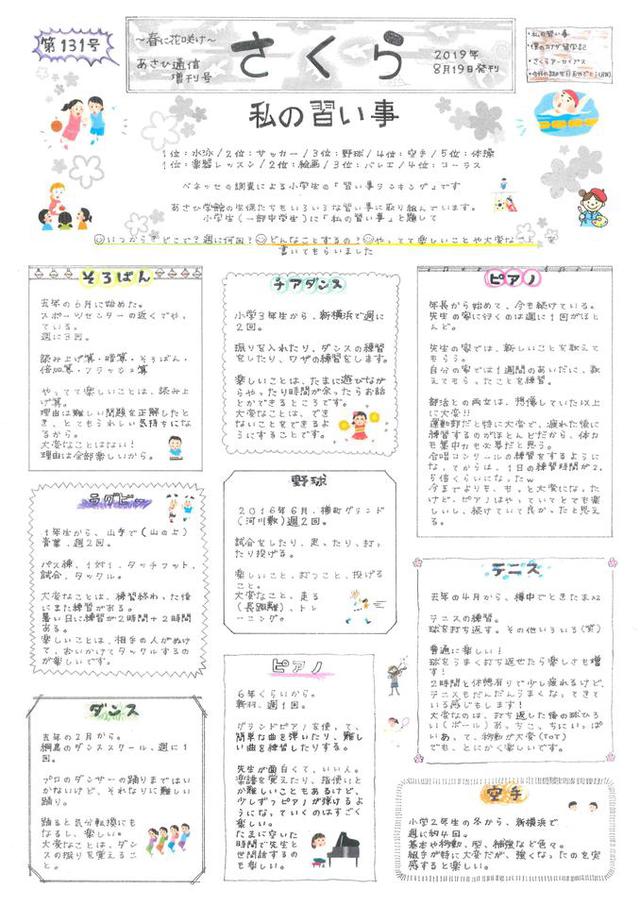 第131号
～春に花咲け～
あさひ通信
増刊号
さくら
2019年
8月19日発刊
・私の習い事
・僕のカナダ留学記
・さくらアーカイブス
私の習い事
1位：水泳/2位：サッカー/3位：野球/4位：空手/5位：体操
1位：楽器レッスン/2位：絵画/3位：バレエ/4位：コーラス
ベネッセの調査による小学生の「習い事ランキング」です
あさひ学院の生徒たちもいろいろな習い事に取り組んでいます。
小学生(一部中学生)に「私の習い事」と題して
いつから？どこで？週に何回？どんなことするの？やってて楽しいことや大変なこと を
書いてもらいました
そろばん
去年の6月に始めた。
スポーツセンターの近くでやっ
ている。
週に3回。
読み上げ算・暗算・そろばん・
伝票算・フラッシュ算
やってて楽しいことは、読み上
げ算。
理由は難しい問題を正解したと
き、とてもうれしい気持ちにな
るから。
大変なことはない！
理由は全部楽しいから。
チアダンス
小学3年生から、新横浜で週に
2回。
振りを入れたり、ダンスの練習
をしたり、ワザの練習をします。
楽しいことは、たまに遊びなが
らやったり時間が余ったらお話
とかできるところです。
大変なことは、でき
ないことをできるよ
うにすることです。
ピアノ
年長から始めて、今も続けている。
先生の家に行くのは週に1回がほと
んど。
先生の家では、新しいことを教えて
もらう。
自分の家では1週間のあいだに、教
えてもらったことを練習。
部活との両立は、想像していた以上
に大変!!
運動部だと特に大変で、疲れた後に
練習するのがほとんどだから、体力
も集中力も必要だと思う。
合唱コンクールの練習をするように
なってからは、1日の練習時間が2.
5倍くらいになった
今までよりも、もっと大変になった
けど、ピアノはやっていてとても楽
しいし、続けていて良かったと思え
る。
ラグビー
1年生から、山手で(山の上)
青葉、週2回。
パス練、1対1、タッチフット、
試合、タックル。
大変なことは、練習終わった後
にまた練習がある。
暑い日に練習が2時間+2時間
ある。
楽しいことは、相手の人がぬけ
て、おいかけてタックルするの
が楽しいです。
野球
2016年6月、樽町グランド
(河川敷)週2回。
試合をしたり、走ったり、打っ
たり投げる。
楽しいこと、打つこと、投げる
こと。
大変なこと、走る
(長距離)、トレ
ーニング。
テニス
去年の4月から、樽中でときたまxx
テニスの練習。
球を打ち返す。その他いろいろ(笑)
普通に楽しい！
球をうまく打ち返せたら楽しさも増
す！
2時間と休憩有りで少し疲れるけど、
テニスもだんだんうまくなってきて
いる感じもします！
大変なのは、打ち返した後の球ひろ
い(ボール)あっちこっちにいっぱ
いあって、移動が大変(ToT)
でも、とにかく楽しいです。
ダンス
去年の2月から。
綱島のダンススクール、週に1
回。
プロのダンサーの踊りまではい
かないけど、それなりに難しい
踊り。
踊ると気分転換にも
なるし、楽しい。
大変なことは、ダン
スの振りを覚えるこ
と。
ピアノ
6年くらいから。
新羽、週1回。
グランドピアノを使って、
簡単な曲を弾いたり、難し
い曲を練習したりする。
先生が面白くて、いい人。
楽譜を覚えたり、指使いと
か難しいこともあるけど、
少しずつピアノが弾けるよ
うになっていくのはすごく
楽しい。
たまに空いた
時間で先生と
世間話するの
も楽しい。
空手
小学2年生の冬から、新横浜で
週に約4回。
基本や移動、型、補強など色々。
組手が特に大変だが、強くなったのを実
感すると楽しい。